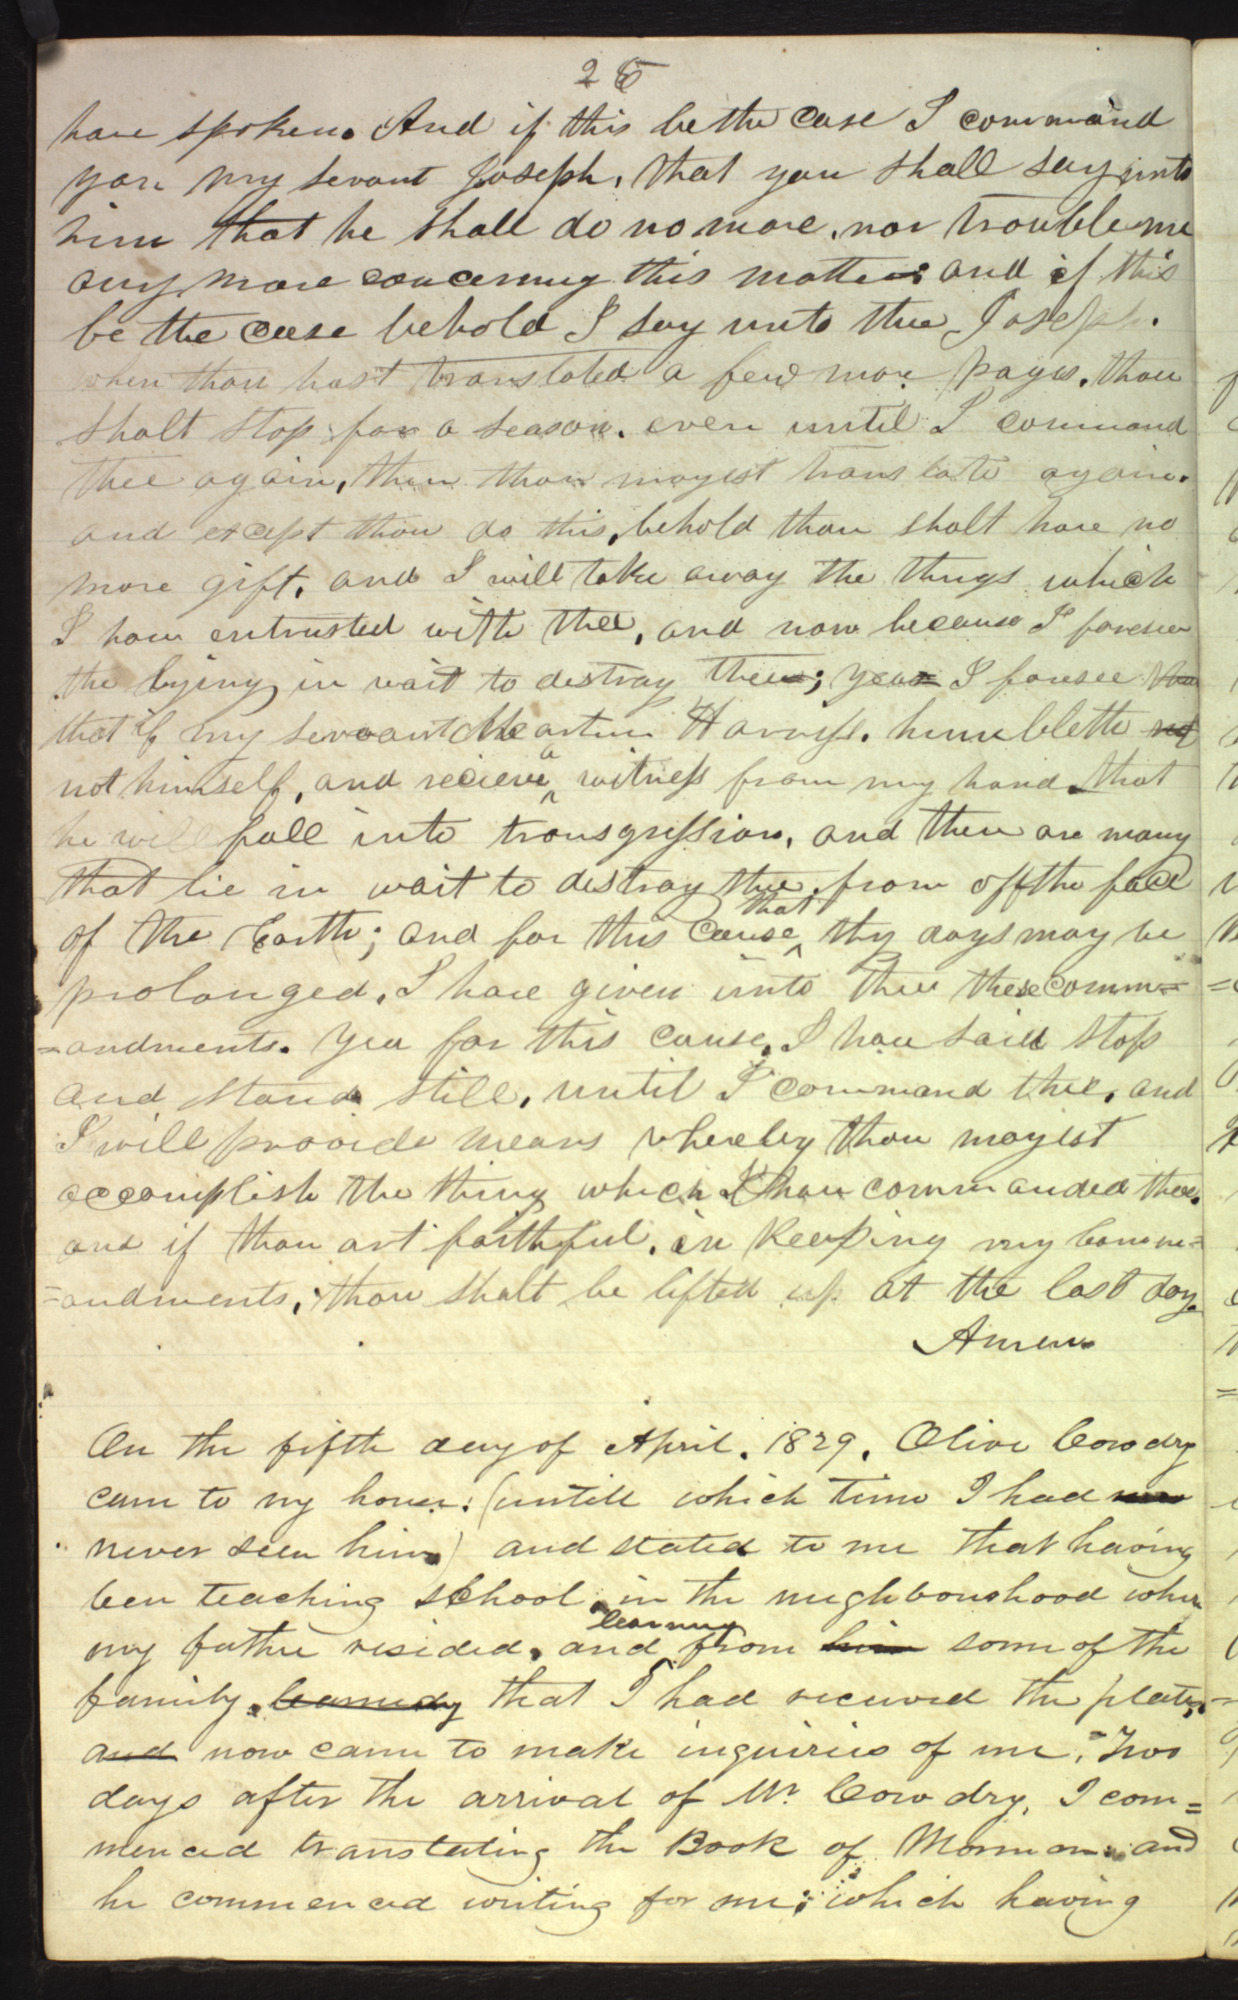 25
have spoken. And if this be the case I command
you my servant Joseph, that you shall say unto
him that he shall do no more, nor trouble me
any more concerning this matter; and if this
be the case behold I say unto thee Joseph.
when thou hast translated a few more pages, thou
shalt stop for a season, even until I command
thee again, then thou mayest translate again.
and except thou do this, behold thou shalt have no
more gift, and I will take away the things which
I have entrusted with thee, and now because I foresee
the lying in wait to destroy thee; yea I forsee
that if my servant Martin Harriss. humbleth not
not himself, and recieve a witness from my hand, that
he will fall into transgression, and there are many
that lie in wait to destroy thee, from off the face
of the Earth; and for this cause that thy days may be
prolonged, I have given unto thee these comm=
=andments. Yea for this cause, I have said stop
and stand still, until I command thee, and
I will provide means whereby thou mayest
accomplish the thing which I have commanded thee.
and if thou art faithful, in keeping my comm=
=andments, thou shalt be lifted up at the last day.
Amen.
On the fifth day of April, 1829, Oliver Cowdry
came to my house, (untill which time I had
never seen him) and stated to me that having
been teaching school, in the neighbourhood where
my father resided, and learning from him some of the
family, that I had received the plates,
and now came to make inquiries of me, Two
days after the arrival of Mr Cowdry, I com=
menced translating the Book of Mormon and
he commenced writing for me; which having